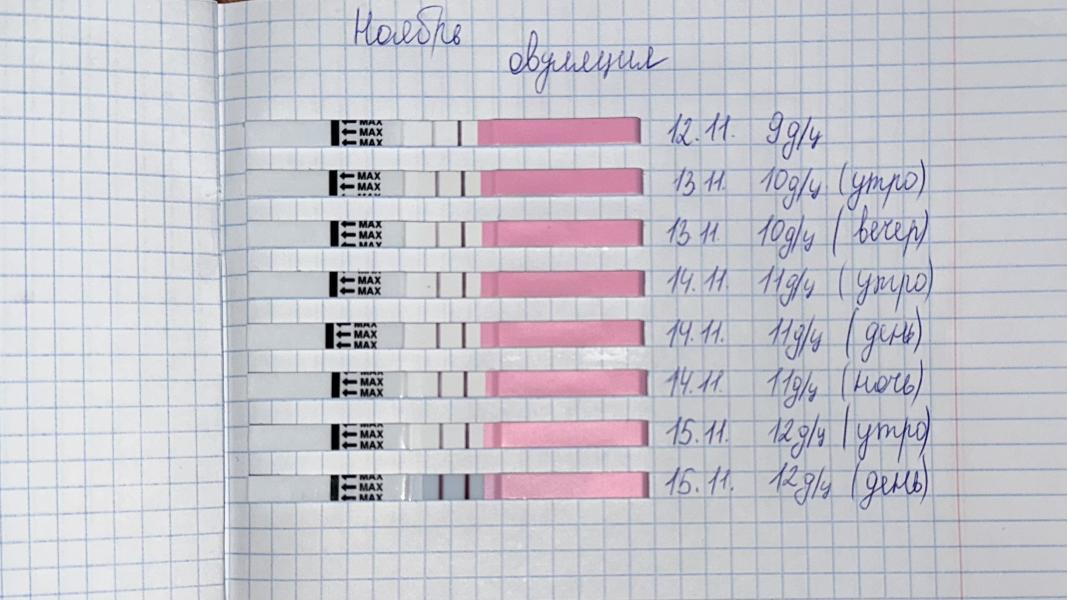 Ноябрь
овуляция
MAX MAX MAX 12.11. 9д/ц
MAX MAX 13 11. 10д/ц (утро)
MAX MAX MAX 13 11. 10д/ц (вечер)
MAX MAX MAX 14.11. 11д/ц (утро)
MAX MAX MAX 14.11. 11д/ц (день)
MAX MAX MAX 14.11. 11д/ц (ночь)
MAX MAX MAX 15.11. 12д/ц (утро)
MAX MAX MAX 15.11. 12д/ц (день)